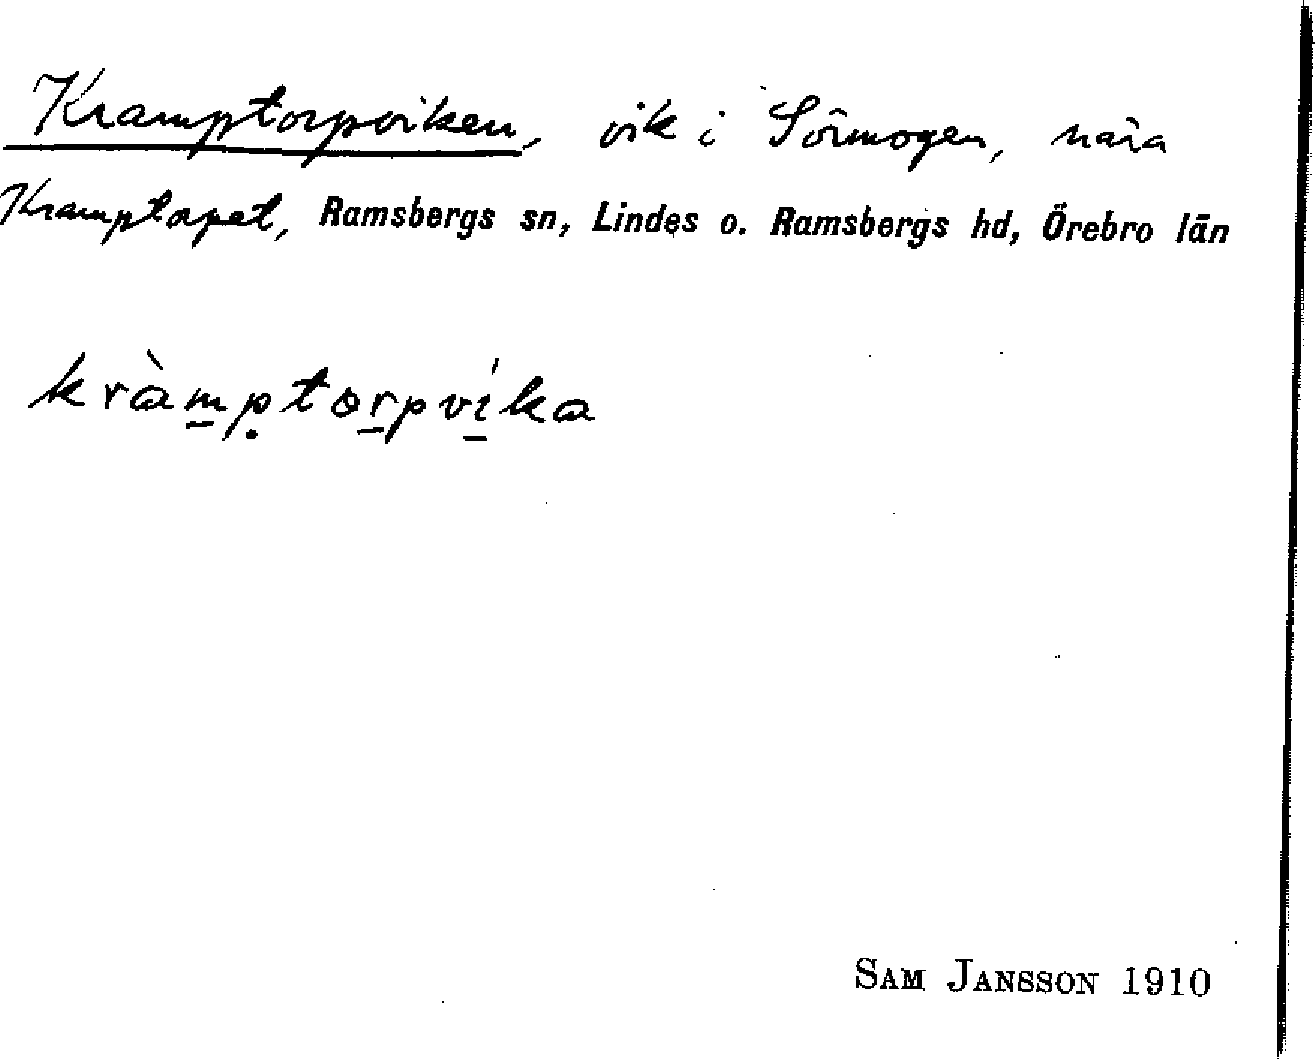 Kramptorpviken, vik i Sörmogen, nära
Kramptorpet, Ramsbergs sn, Lindes o. Ramsbergs hd, Örebro län
kràm̲p̣tor̲pví̲ka
SAM JANSSON 1910